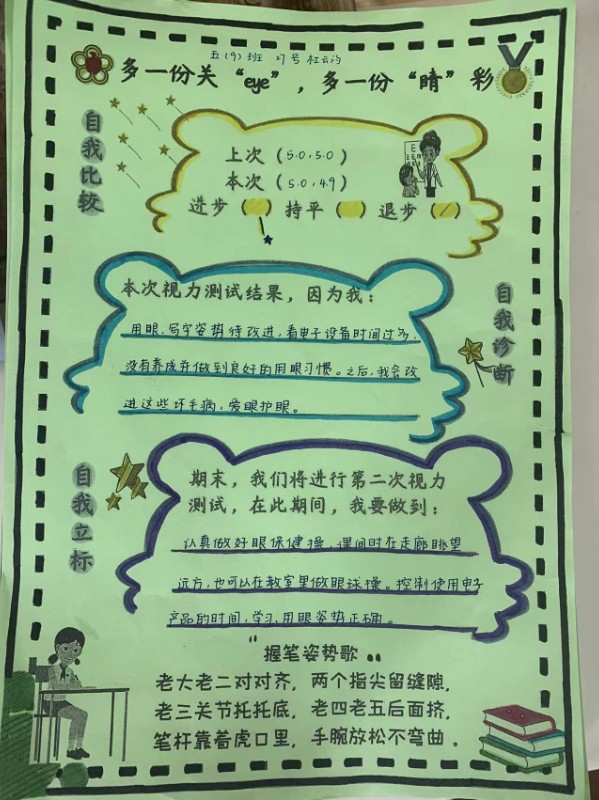 五(9)班 27号 杜云汐
多一份关“eye”，多一份“睛”彩
自我比较
上次（5.0，5.0）
本次（5.0，4.9）
进步（ ）持平（ ）退步（✓）
本次视力测试结果，因为我：
用眼、写字姿势待改进，看电子设备时间过多，
没有养成并做到良好的用眼习惯。之后，我会改
进这些坏毛病，爱眼护眼。
自我诊断
自我立标
期末，我们将进行第二次视力
测试，在此期间，我要做到：
认真做好眼保健操，课间时在走廊眺望
远方，也可以在教室里做眼球操。控制使用电子
产品的时间，学习、用眼姿势正确。
握笔姿势歌
老大老二对对齐，两个指尖留缝隙，
老三关节托托底，老四老五后面挤，
笔杆靠着虎口里，手腕放松不弯曲．